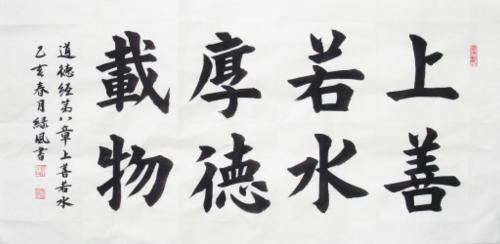 上善
若水
厚德
載物
道德经第八章上善若水
己亥春月緑风書